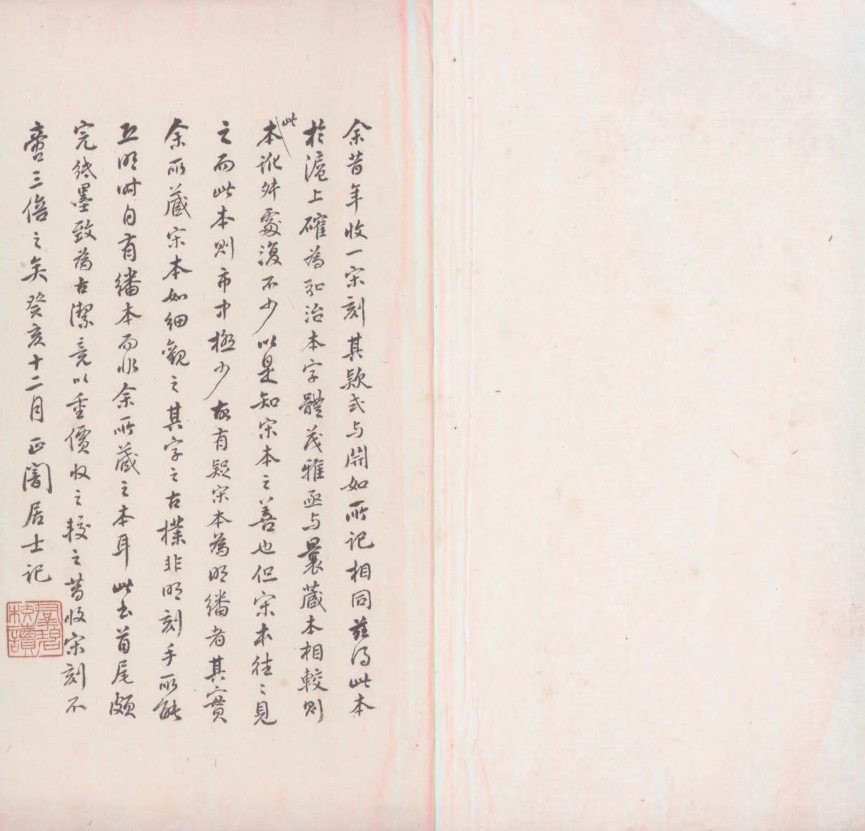 余昔年收一宋刻其款式与開如所记相同兹得此本
於滬上確為弘治本字體茂雅亟与曩藏本相較則
此
本訛舛處復不少以是知宋本之善也但宋本往〻見
之而此本則市中極少故有疑宋本為明繙者其實
余所藏宋本如细觀之其字之古樸非明刻手所能
且明时自有繙本而非余所藏之本耳此書首尾頗
完紙墨致為古潔竟以重價收之較之昔收宋刻不
啻三倍之矣癸亥十二月正闇居士记
羣碧
校讀